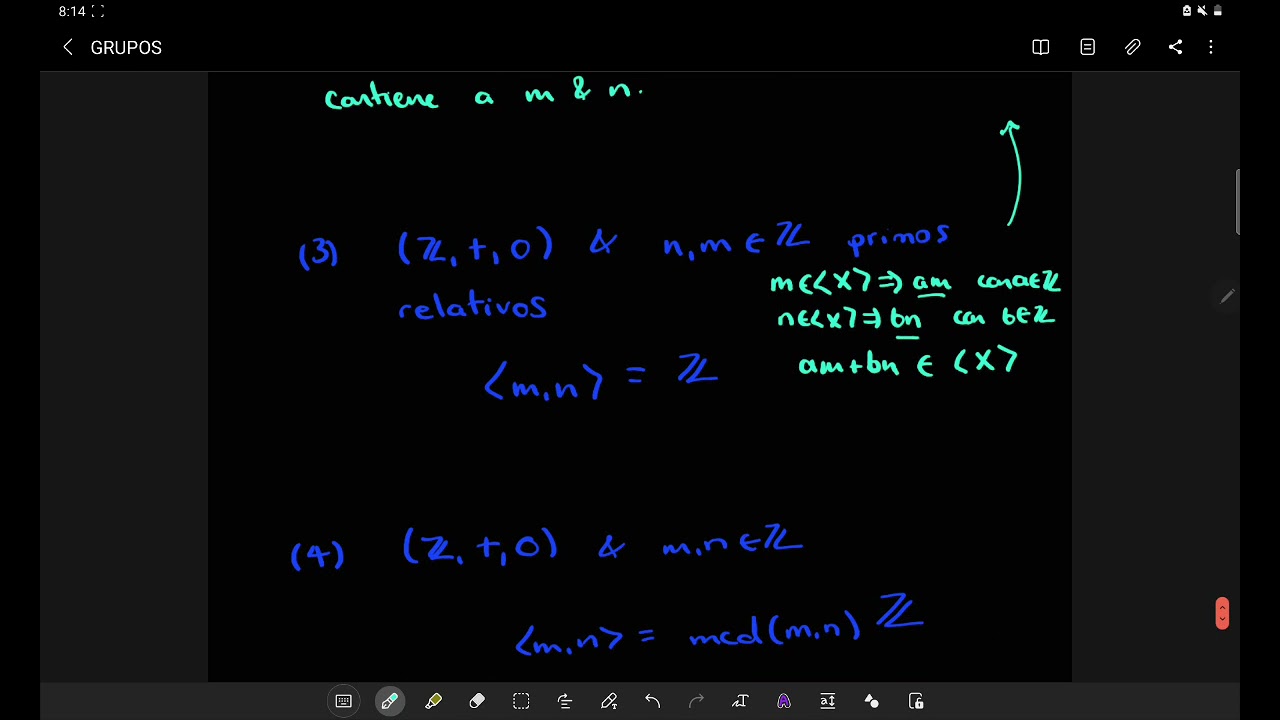 8:14
GRUPOS
contiene a m & n.
(3) (ℤ, +, 0) & n, m ∈ ℤ primos
relativos
m ∈ ⟨X⟩ ⇒ am con a ∈ ℤ
n ∈ ⟨X⟩ ⇒ bn con b ∈ ℤ
am + bn ∈ ⟨X⟩
⟨m, n⟩ = ℤ
(4) (ℤ, +, 0) & m, n ∈ ℤ
⟨m, n⟩ = mcd(m, n) ℤ